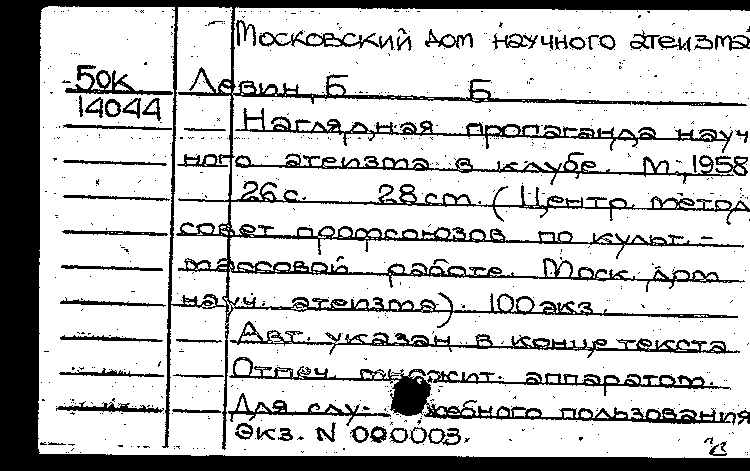 Московский дом научного атеизма
50К
14044
Левин, Б Б
Наглядная пропаганда науч
ного атеизма в клубе. М., 1958
26 с. 28 cm. (Центр. метод.
совет профсоюзов по культ.-
массовой работе. Моск. дом
науч. атеизма). 100 экз.
Авт. указан в конце текста
Отпеч. множит. аппаратом.
Для служебного пользования
Экз. N 000003.